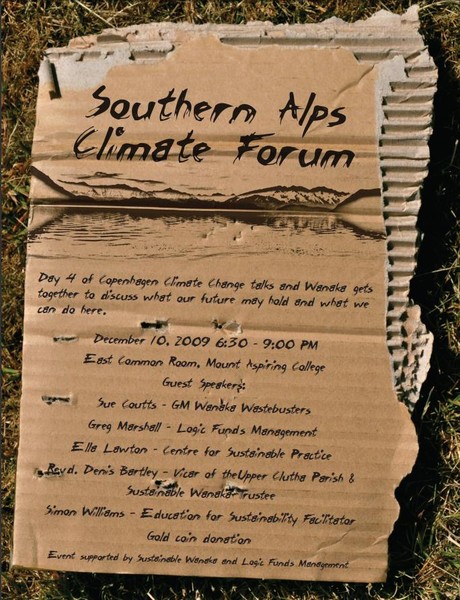 Southern Alps
Climate Forum
Day 4 of Copenhagen Climate Change talks and Wanaka gets
together to discuss what our future may hold and what we
can do here.
December 10, 2009 6:30 - 9:00 PM
East Common Room, Mount Aspiring College
Guest Speakers:
Sue Coutts - GM Wanaka Wastebusters
Greg Marshall - Logic Funds Management
Ella Lawton - Centre for Sustainable Practice
Revd. Denis Bartley - Vicar of theUpper Clutha Parish &
Sustainable Wanaka Trustee
Simon Williams - Education for Sustainability Facilitator
Gold coin donation
Event supported by Sustainable Wanaka and Logic Funds Management